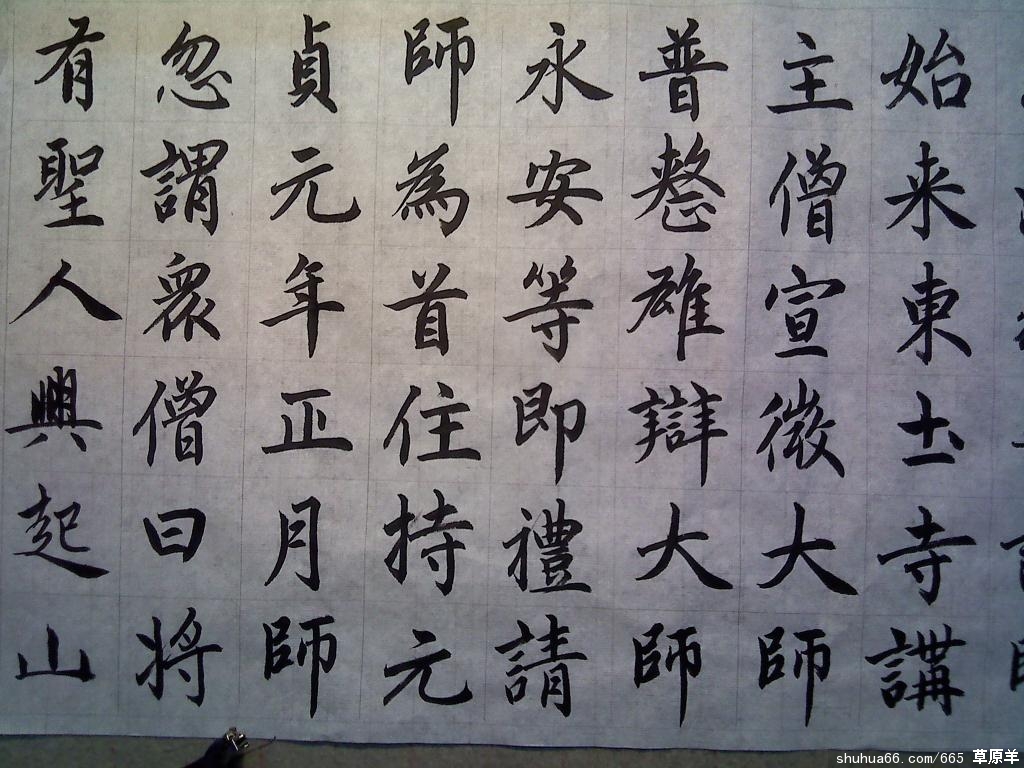 始来東土寺講
主僧宣徽大師
普整雄辯大師
永安等即禮請
師為首住持元
貞元年正月師
忽謂衆僧曰將
有聖人興起山
shuhua66.com/665 草原羊